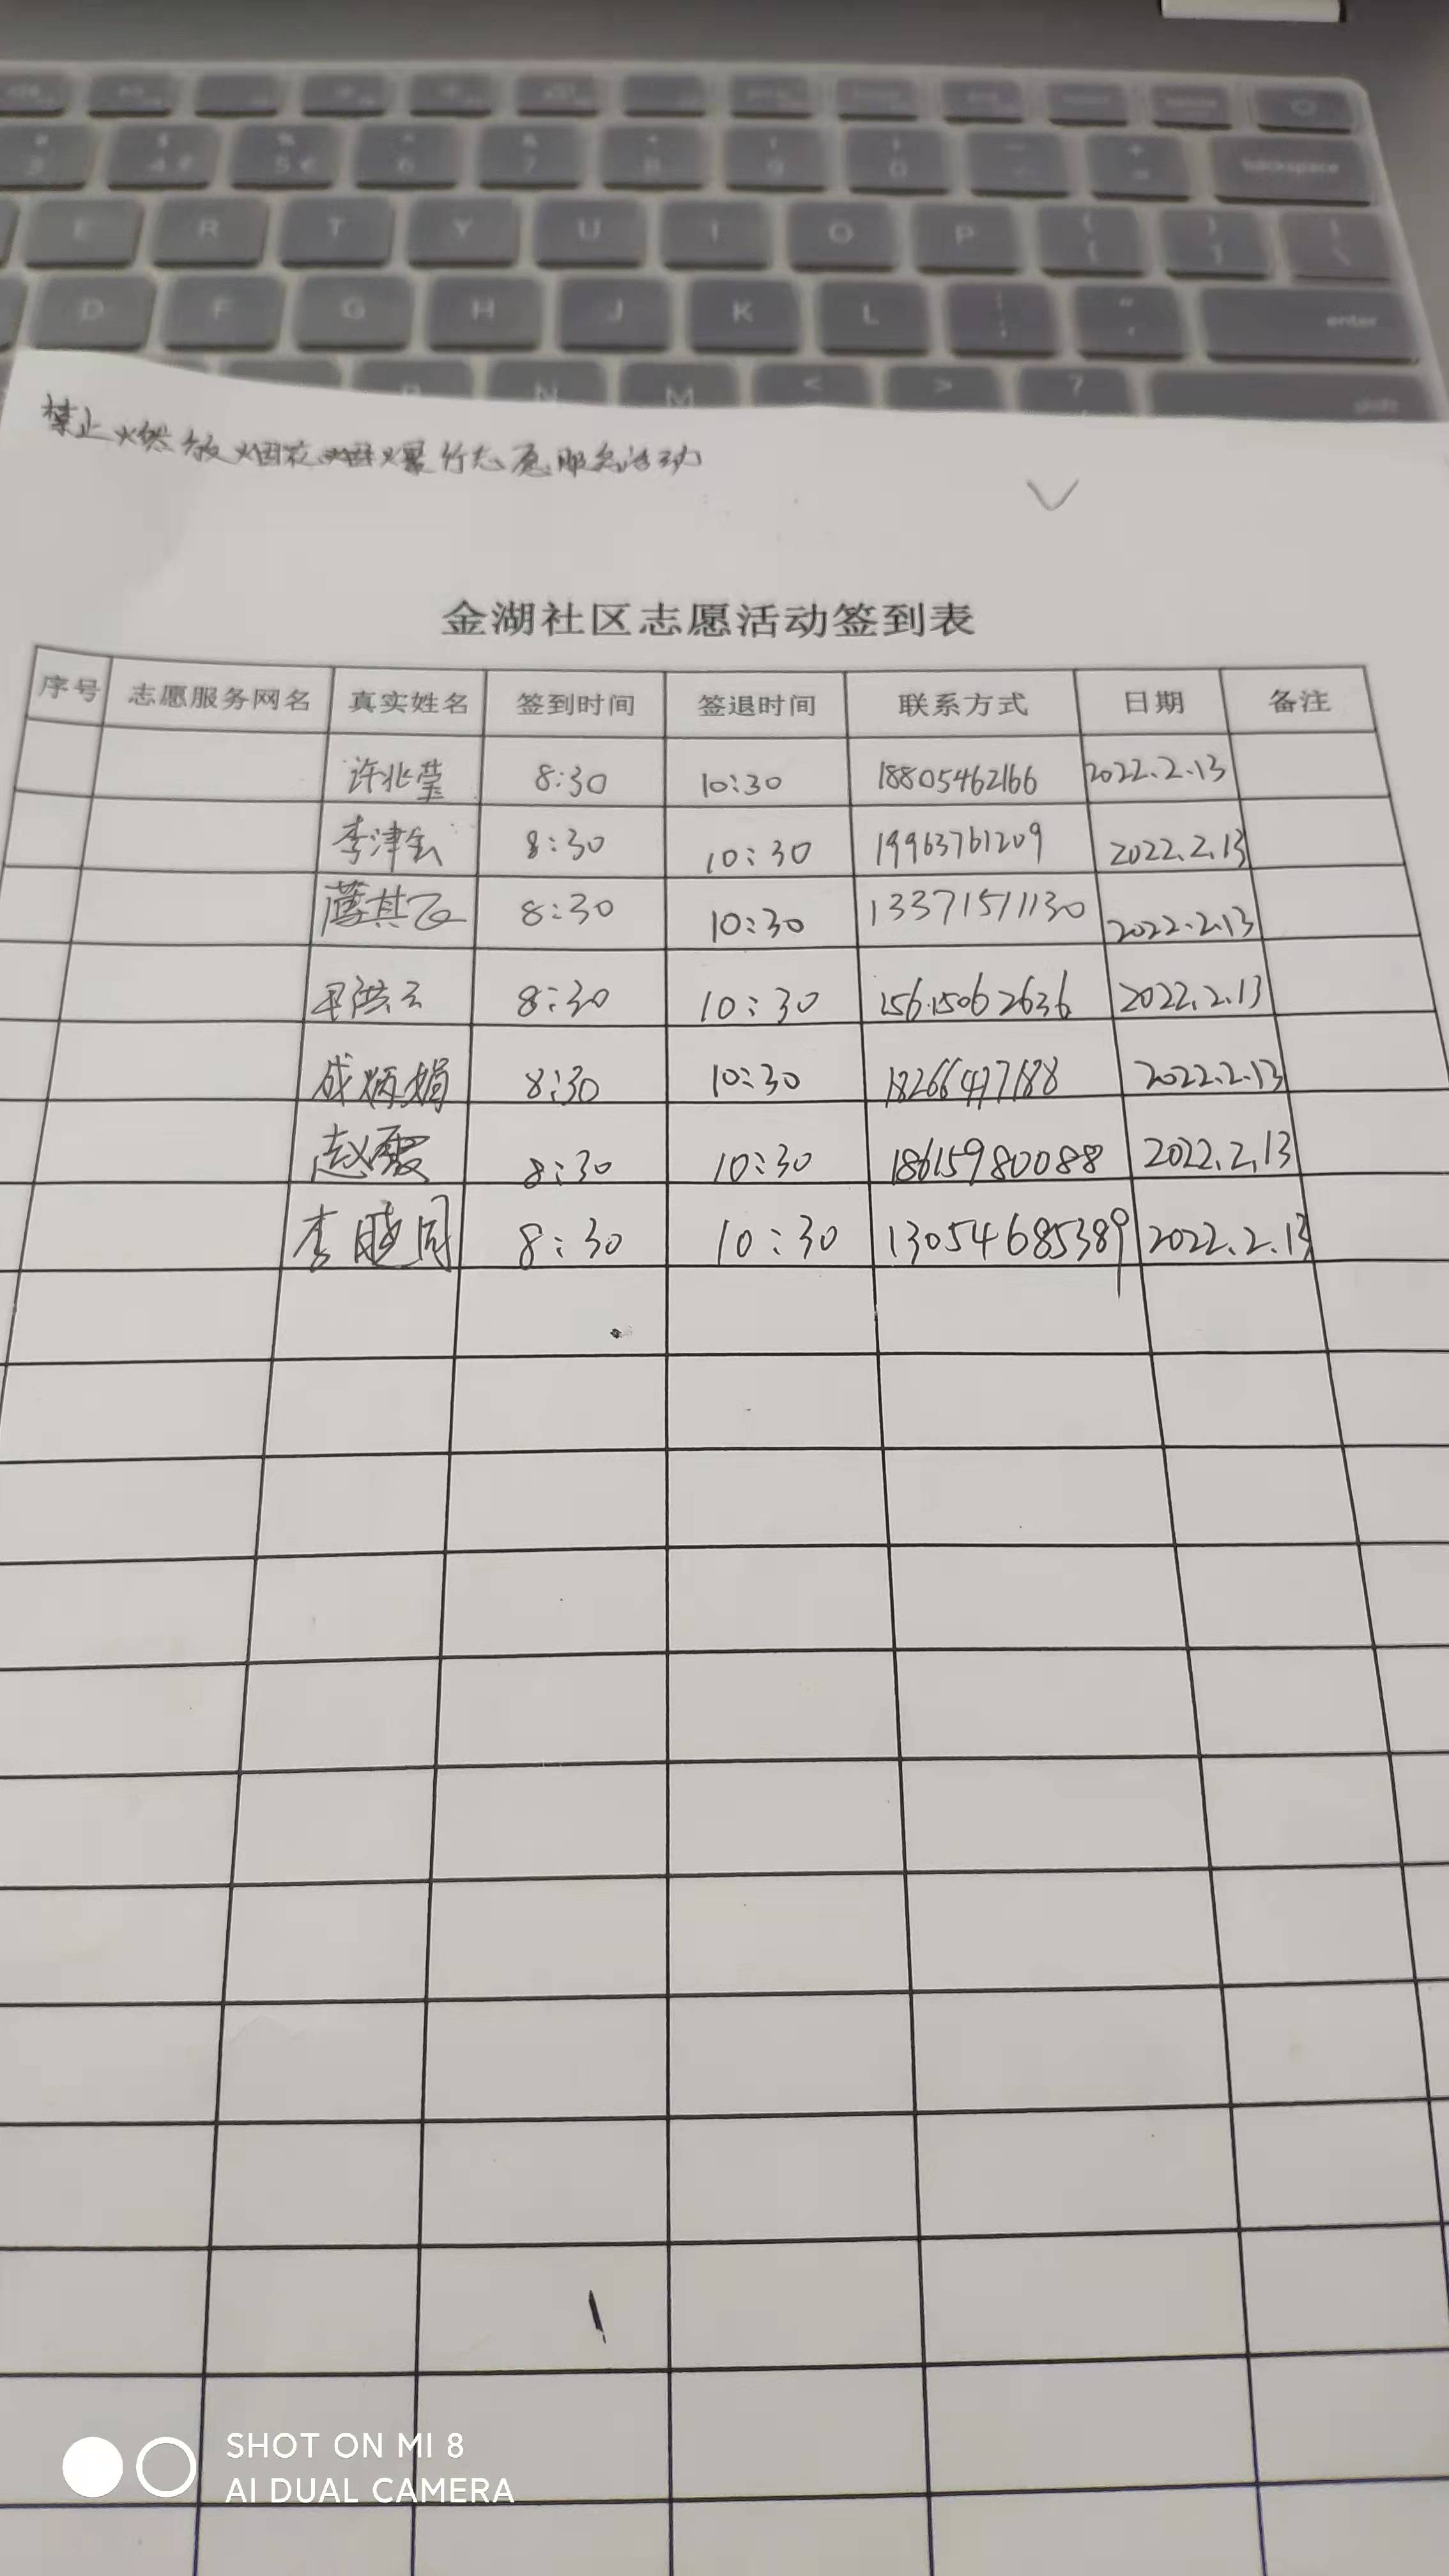 E R T Y U I O P
backspace
D F G H J K L
enter
N M < > ?
shift
禁止燃放烟花烟爆竹志愿服务活动
金湖社区志愿活动签到表
序号 志愿服务网名 真实姓名 签到时间 签退时间 联系方式 日期 备注
许兆莹 8:30 10:30 18805462166 2022.2.13
李津 8:30 10:30 19963761209 2022.2.13
其飞 8:30 10:30 13371571130 2022.2.13
洪云 8:30 10:30 15615062636 2022.2.13
成炳娟 8:30 10:30 2022.2.13
赵霞 8:30 10:30 18615980088 2022.2.13
李晓同 8:30 10:30 13054685389 2022.2.13
SHOT ON MI 8
AI DUAL CAMERA